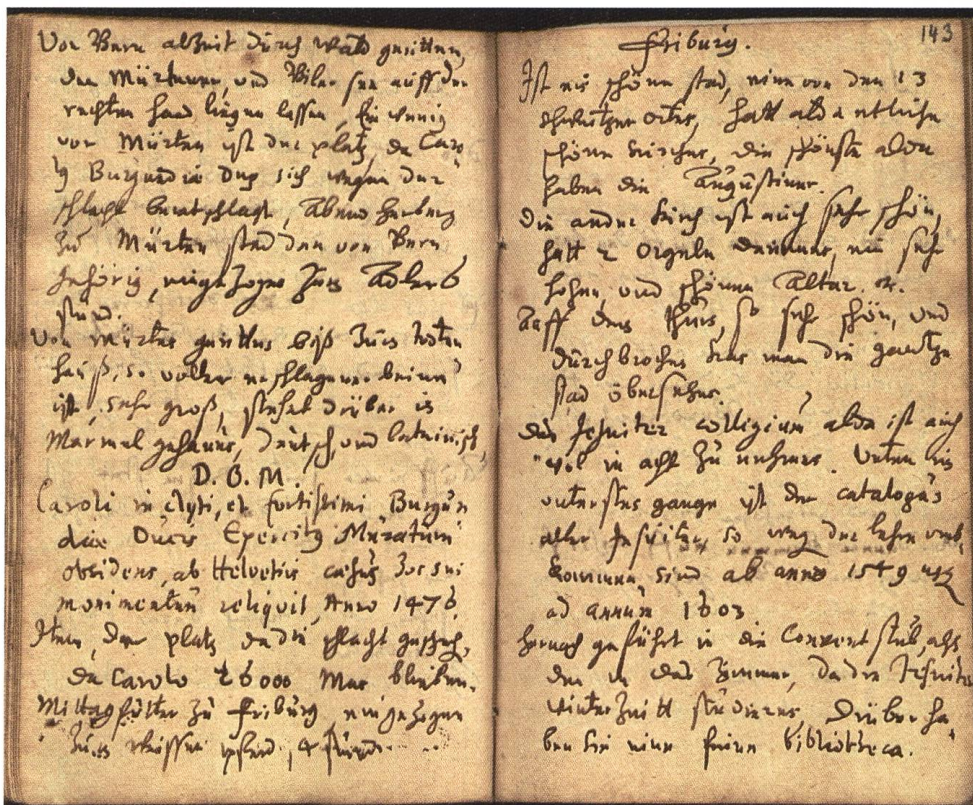 Von Bern allzeit durch wald geritten,
den Mürtner, und Bieler see auff der
rechten hand liegen lassen, Ein wenig
vor Mürten ist der platz, da Caro
lg Burgundiæ Dux sich wegen der
schlacht berathschlagt, Abend herberg
zu Mürten stad den von Bern
gehörig, eingezogen zum Adler 6
stund.
Von Mürten geritten biß zum todten
hauß, so voller erschlagener beinen
ist, sehr groß, stehet drüber in
Marmel gehauen, deutsch, und lateinisch,
D. O. M.
Caroli inclyti, et fortissimi Burgun
diæ Ducis Exercitg Muratum
obsidens, ab Helvetiis cæsus hoc sui
monimentum reliquit, Anno 1476
Item, der platz da die schlacht geschehen,
da Carolo 26000 Man blieben.
Mittagfutter zu Friburg, eingezogen
zum weissen pferd, 4 stund
143
Friburg.
Ist ein schöne stad, eine von den 13
schweitzer orten, hatt alda etliche
schöne kirchen, die schönste alda
haben die Augustiner.
Die ander kirch ist auch sehr schön,
hatt 2 orgeln drinnen, ein sehr
hohen, und schönen Altar. etc.
Auff dem thurn, so sehr schön, und
durchbrochen kan man die gantze
stad übersehen.
Das Jesuiter collegium alda ist auch
wol in acht zu nehmen. Unten im
untersten gange ist der catalogus
aller Jesuiten, so weg der lehre umb,
kommen, sind ab anno 1549 usq
ad annum 1603
hernach geführt in die Convent stub, alß
den in das Zimmer, da die Jesuiten
winterzeitt studieren, Drüber ha
ben sie eine feine bibliotheca.